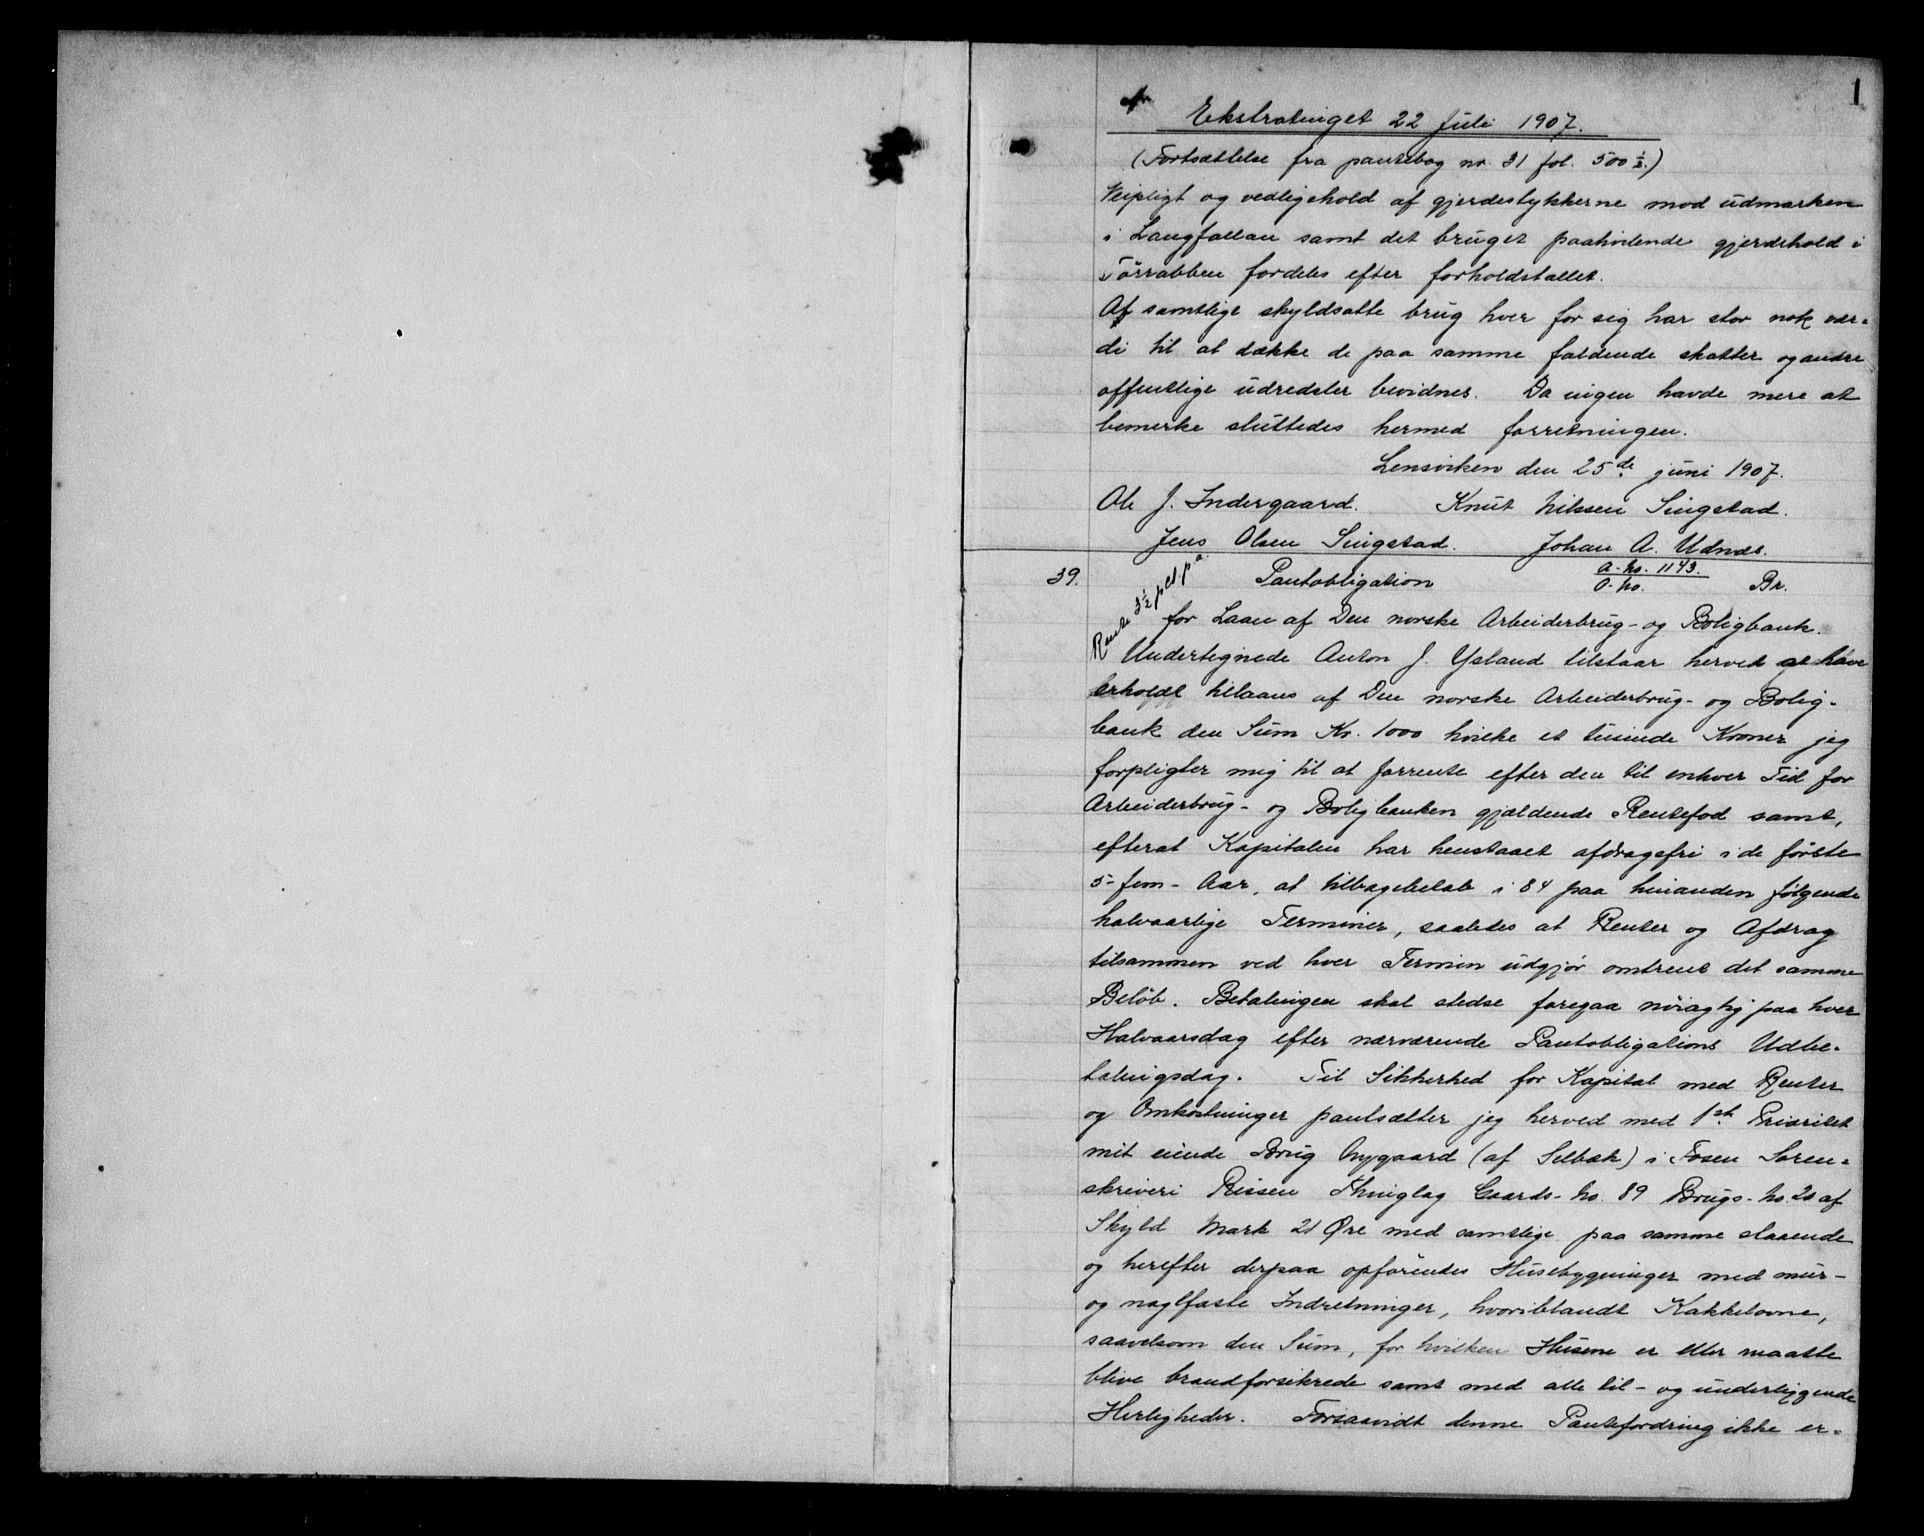 1
Ekstratinget 22 Juli 1907.
(Fortsættelse fra pantebog nr. 31 fol. 500 ½.)
Veipligt og vedligehold af gjerdestykkerne mod udmarken
i Langfallan samt det bruget paahvilende gjerdehold i
Törrabben fordeles efter forholdstallet.
At samtlige skyldsatte brug hver for sig har stor nok vær-
di til at dække de paa samme faldende skatter og andre
offentlige udredsler bevidnes. Da ingen havde mere at
bemerke sluttedes hermed forretningen.
Lensviken den 25de juni 1907.
Ole J. Indergaard. Knut Nilssen Singstad.
Jens Olsen Singstad. Johan A. Udnæs.
39. Pantobligation A-No. 1143. O-No. Br.
Rente 3½ pct p.a.
for Laan af Den norske Arbeiderbrug- og Boligbank.
Undertegnede Anton J. Ysland tilstaar herved at have
erholdt tillaans af Den norske Arbeiderbrug- og Bolig-
bank den Sum Kr. 1000 hvilke et tusinde Kroner jeg
forpligter mig til at forrente efter den til enhver Tid for
Arbeiderbrug- og Boligbanken gjældende Rentefod samt,
efterat Kapitalen har henstaaet afdragsfri i de første
5- fem- Aar, at tilbagebetale i 84 paa hinanden følgende
halvaarlige Terminer, saaledes at Renter og Afdrag
tilsammen ved hver Termin udgjør omtrent det samme
Beløb. Betalingen skal stedse foregaa nöiagtig paa hver
Halvaarsdag efter nærværende Pantobligations Udbe-
talingsdag. Til Sikkerhed for Kapital med Renter
og Omkostninger pantsætter jeg herved med 1ste Prioritet
mit eiende Brug Nygaard (af Selbæk) i Fosen Soren-
skriveri Rissen Thinglag Gaards-No. 89 Brugs-No. 20 af
Skyld Mark 21 Øre med samtlige paa samme staaende
og herefter derpaa opførendes Husebygninger med mur-
og naglfaste Indretninger, hvoriblandt Kakkelovne,
saavelsom den Sum, for hvilken Husene er eller maatte
blive brandforsikrede samt med alle til- og underliggende
Herligheder. Forsaavidt denne Pantefordring ikke er-